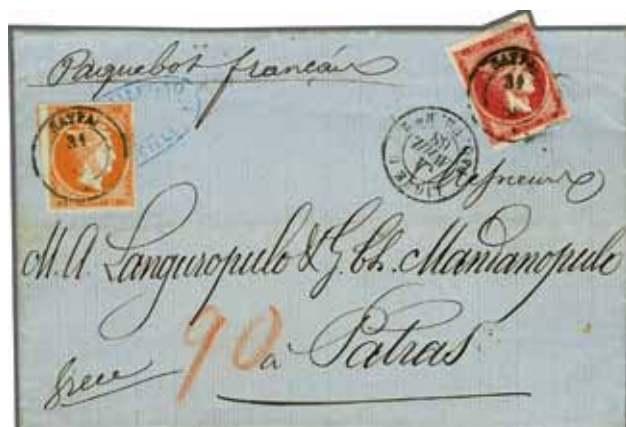 Paquebot français
ΠΑΤΡΑΙ
31
ΠΑΤΡΑΙ
31
LIGNE
Messieurs
M. A. Languropulo & G. Ch. Mandanopulo
Grece
90
à Patras